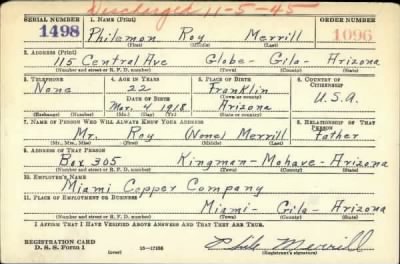 Discharged 11-5-45
SERIAL NUMBER 1. NAME (Print) ORDER NUMBER
1498 Philemon Roy Merrill 1096
(First) (Middle) (Last)
2. ADDRESS (Print)
115 Central Ave Globe- Gila- Arizona
(Number and street or R. F. D. number) (Town) (County) (State)
3. TELEPHONE 4. AGE IN YEARS 5. PLACE OF BIRTH 6. COUNTRY OF CITIZENSHIP
None 22 Franklin
DATE OF BIRTH (Town or county) U.S.A.
Mar. 4 1918 Arizona
(Exchange) (Number) (Mo.) (Day) (Yr.) (State or country)
7. NAME OF PERSON WHO WILL ALWAYS KNOW YOUR ADDRESS 8. RELATIONSHIP OF THAT PERSON
Mr. Roy (None) Merrill Father
(Mr., Mrs., Miss) (First) (Middle) (Last)
9. ADDRESS OF THAT PERSON
Box 305 Kingman- Mohave- Arizona
(Number and street or R. F. D. number) (Town) (County) (State)
10. EMPLOYER'S NAME
Miami Copper Company
11. PLACE OF EMPLOYMENT OR BUSINESS
Miami- Gila- Arizona
(Number and street or R. F. D. number) (Town) (County) (State)
I AFFIRM THAT I HAVE VERIFIED ABOVE ANSWERS AND THAT THEY ARE TRUE.
REGISTRATION CARD
D. S. S. Form 1 (over) Phile Merrill
(Registrant's signature)